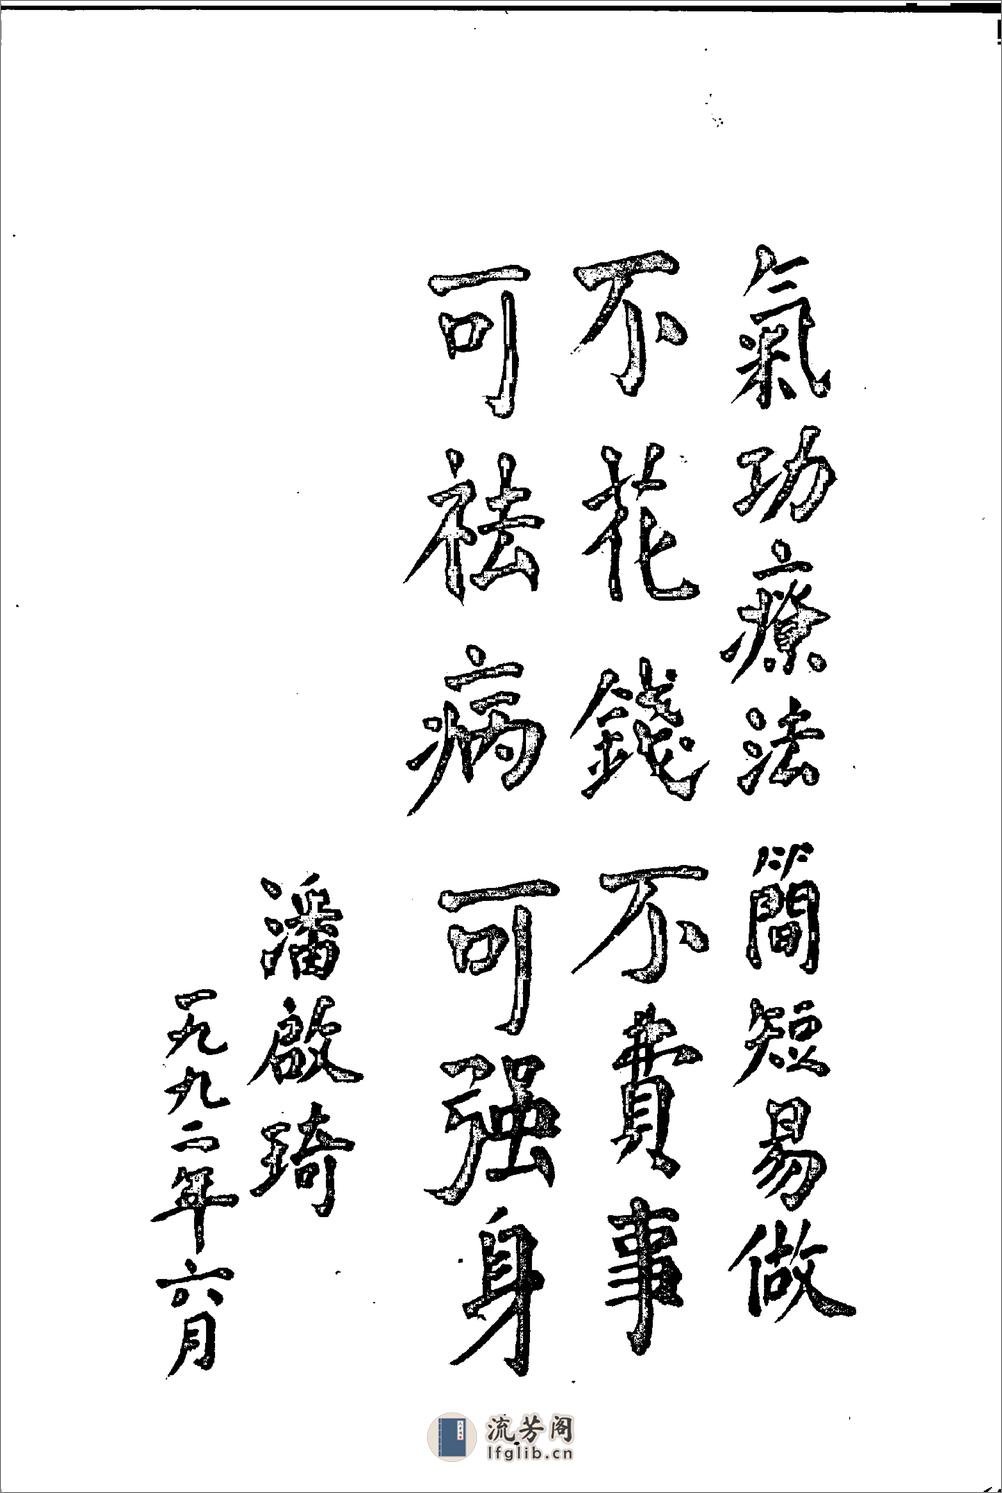 氣功療法 簡短易做
不花錢 不費事
可祛病 可强身
潘啟琦
一九九二年六月
流芳阁
lfglib.cn